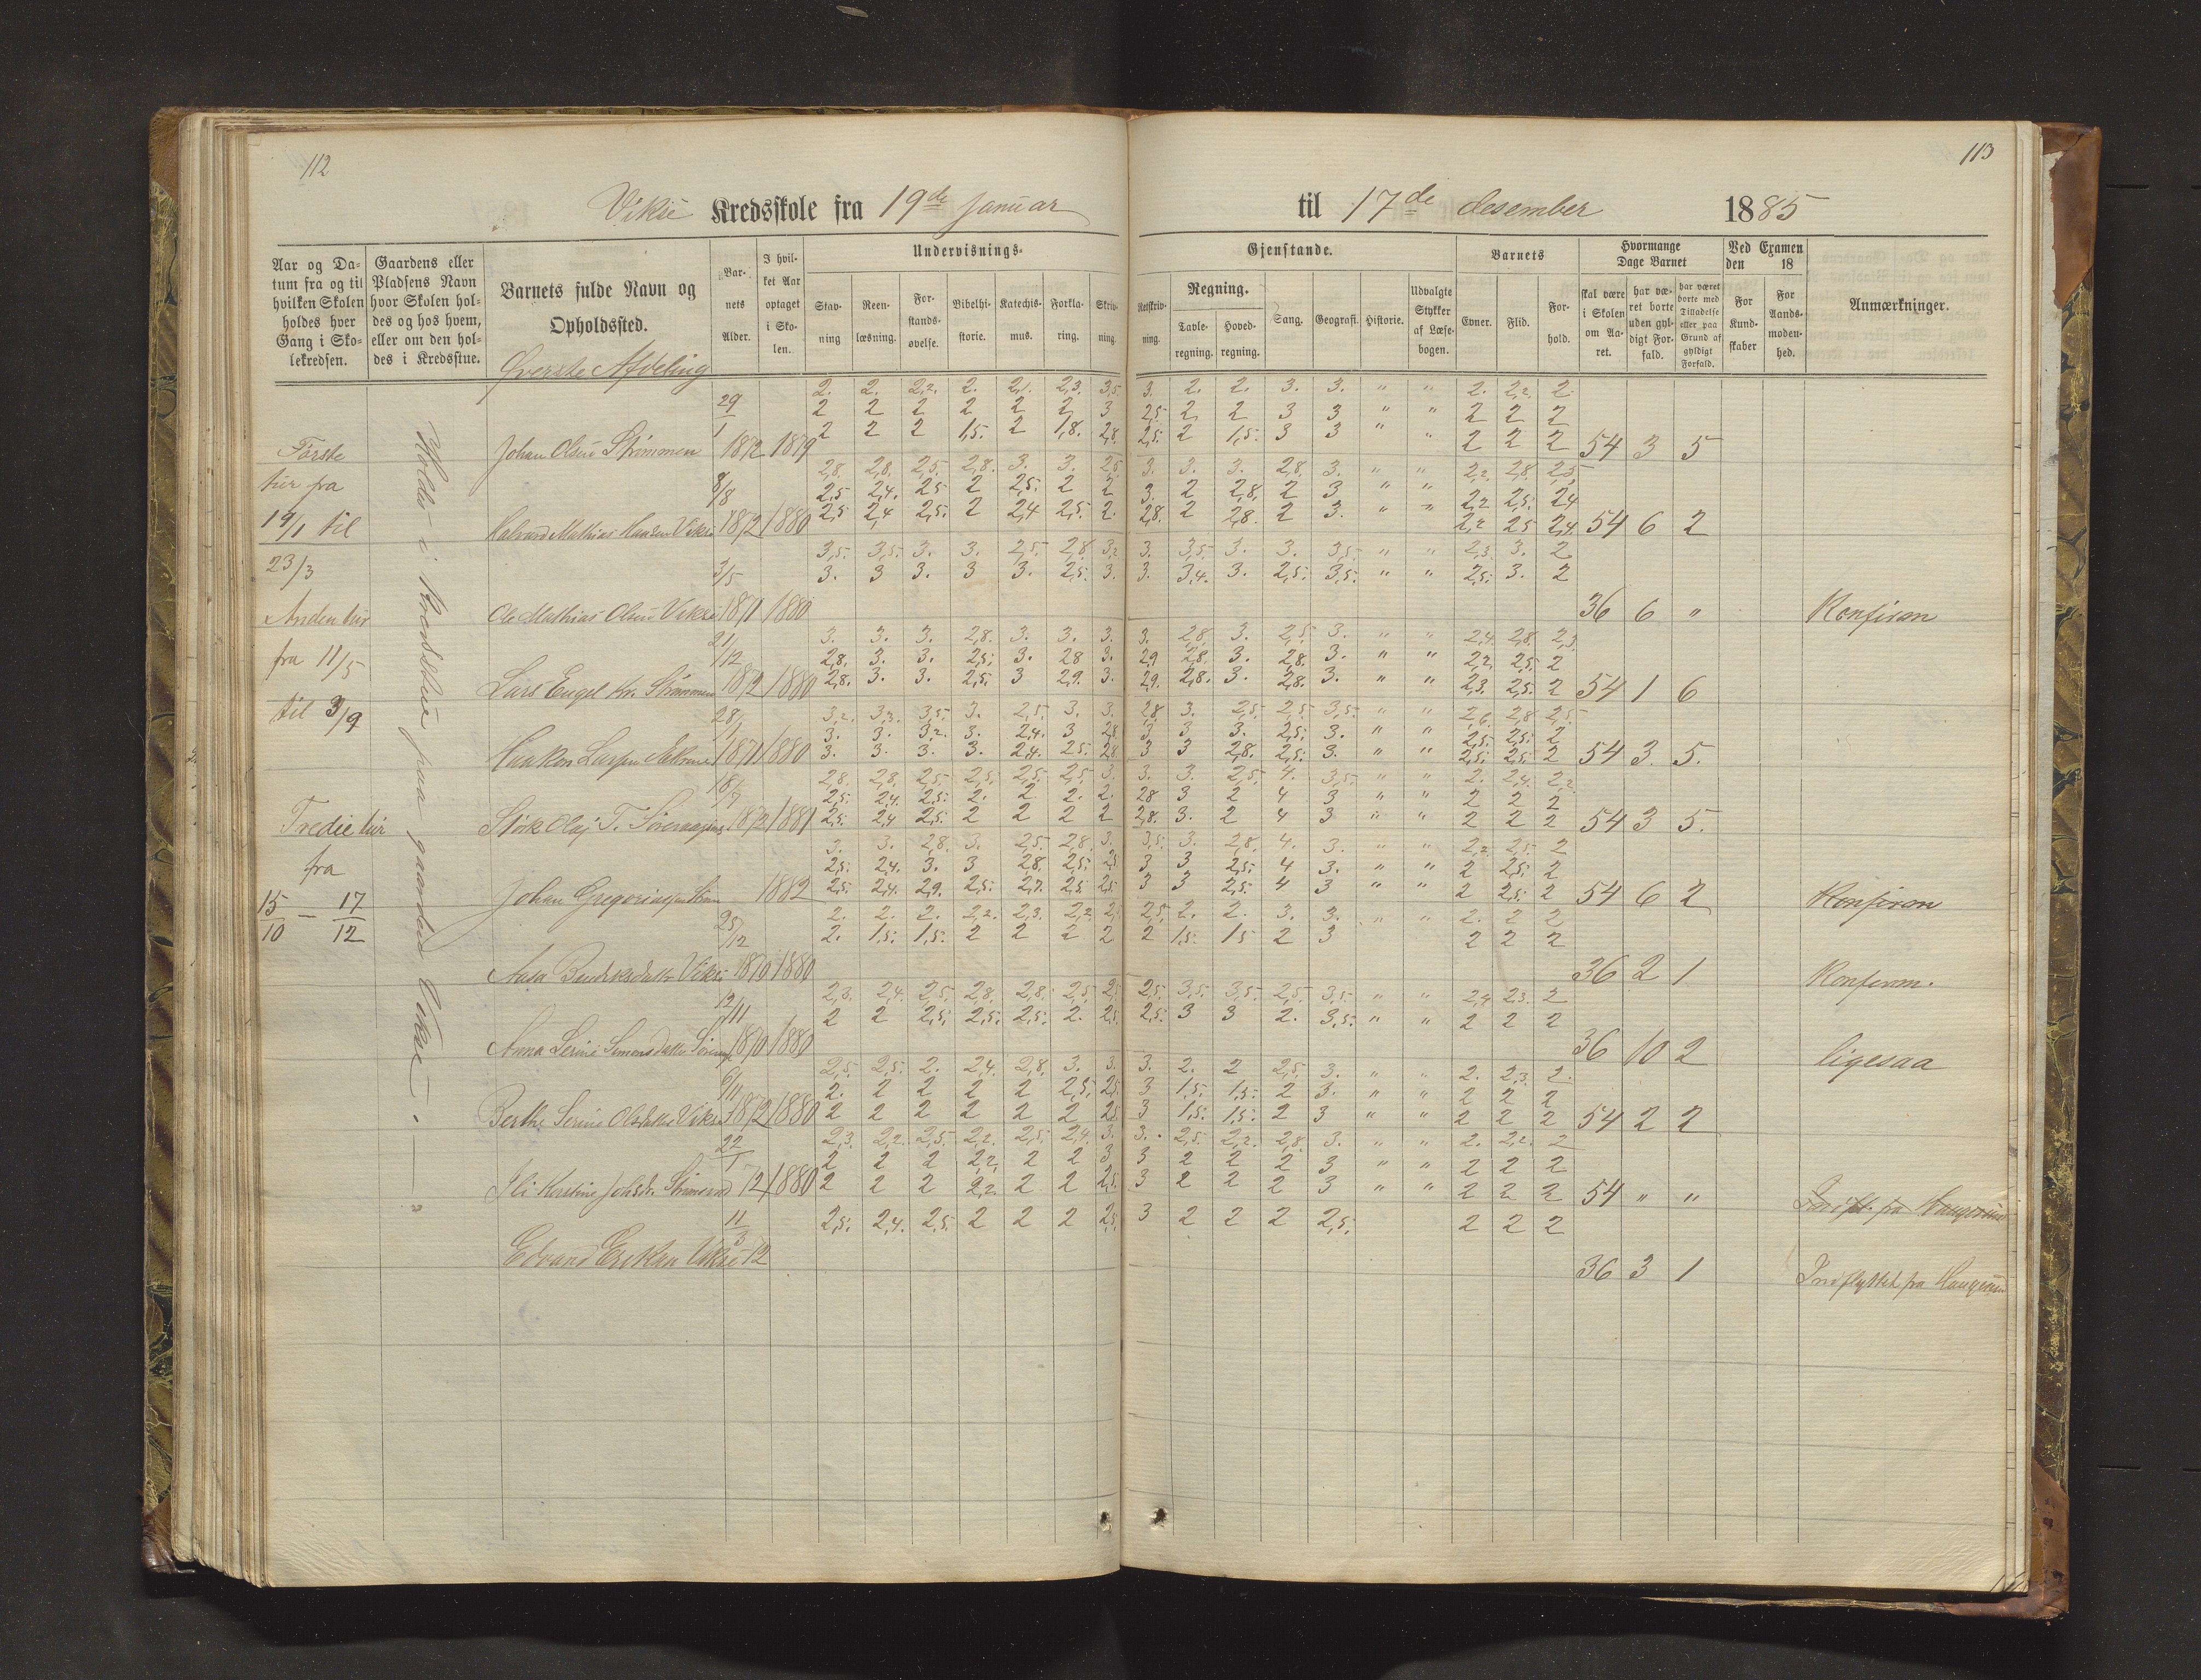 112
113
Vikse Kredsskole fra 19de Januar til 17de desember 1885
Aar og Datum fra og til hvilken Skolen holdes hver Gang i Skolekredsen.
Gaardens eller Pladsens Navn hvor Skolen holdes og hos hvem, eller om den holdes i Kredsstue.
Barnets fulde Navn og Opholdssted.
Barnets Alder.
I hvilket Aar optaget i Skolen.
Undervisnings-
Gjenstande.
Stavning
Reenlæsning.
Forstandsøvelse.
Bibelhistorie.
Katechismus.
Forklaring.
Skrivning.
Retskrivning.
Regning.
Tavleregning.
Hovedregning.
Sang.
Geografi.
Historie.
Udvalgte Stykker af Læsebogen.
Barnets
Evner.
Flid.
Forhold.
Hvormange Dage Barnet
skal være i Skolen om Aaret.
har været borte uden gyldigt Forfald.
har været borte med Tilladelse eller paa Grund af gyldigt Forfald.
Ved Examen den 18
For Kundskaber
For Aandsmodenhed.
Anmærkninger.
Øverste Afdeling
Første
tur fra
19/1 til
23/3
Anden tur
fra 11/5
til 3/9
Tredie tur
fra
15/10 – 17/12
Holdes i Kredsstue paa gaarden Vikse.
2. 2. 2,2. 2. 2,1. 2,3. 3,5. 3. 2. 2. 3. 3. " " 2. 2,2. 2.
29/1 2 2 2 2 2 2 3 2,5. 2 2 3 3 " " 2 2 2
Johan Olsen Strømmen 1872 1879 2 2 2 1,5. 2 1,8. 2,8. 2,5. 2 1,5. 3 3 " " 2 2 2 54 3 5
2,8. 2,8. 2,5. 2,8. 3. 3. 2,5 3. 3. 3. 2,8. 3. " " 2,2. 2,8. 2,5.
8/8 2,5 2,4. 2,5 2 2,5. 2 2 3. 2 2,8. 2 3 " " 2,2 2,5. 2,4
Halvard Mathias Hansen Vikse 1872 1880 2,5 2,4 2,5. 2 2,4 2,5. 2. 2,8. 2 2,8. 2 3. " " 2,2 2,5 2,4. 54 6 2
3,5. 3,5. 3. 3. 2,5. 2,8. 3,2 3. 3,5. 3. 3. 3,5. " " 2,3. 3. 2
3/5 3. 3 3. 3 3. 2,5. 3. 3. 3,4. 3. 2,5. 3,5. " " 2,5. 3. 2
Ole Mathias Olsen Vikse 1871 1880 36 6 " Konfirm
3. 3. 3. 2,8. 3. 3. 3. 3. 2,8. 3. 2,5. 3. " " 2,4. 2,8. 2,3
21/12 2,8. 3. 3. 2,5. 3. 2,8 3. 2,9 2,8. 3. 2,8. 3. " " 2,2. 2,5. 2
Lars Engel Kr. Strømmen 1872 1880 2,8. 3. 3. 2,5. 3 2,9. 3. 2,9. 2,8. 3. 2,8. 3. " " 2,3. 2,5. 2 54 1 6
3,2. 3,3. 3,5. 3. 2,5. 3. 3. 2,8 3. 2,5. 2,5. 3,5. " " 2,6. 2,8 2,5.
28/1 3. 3. 3,2. 3. 2,4. 3 2,8 3 3 3. 2,5. 3. " " 2,5. 2,5. 2
Haakon Larsen 1871 1880 3. 3. 3. 3. 2,4. 2,5. 2,8 3 3 2,8. 2,5. 3. " " 2,5. 2,5. 2 54 3. 5.
2,8. 2,8. 2,5. 2,5. 2,5. 2,5. 3. 3. 3. 2,5. 4. 3,5. " " 2. 2,4. 2,2.
18/7 2,5. 2,4. 2,5. 2. 2. 2. 2. 2,8 3 2 4 3 " " 2 2 2
Størk Olaj T. 1872 1881 2,5. 2,4 2,5. 2 2 2 2 2,8. 3. 2 4 3 " " 2 2 2 54 3 5.
3. 3. 2,8. 3. 2,5. 2,8. 3. 3,5. 3. 2,8. 4. 3. " " 2,2. 2,5. 2
2,5. 2,4. 3. 3 2,8. 2,5. 2,5 3 3 2,5. 4 3. " " 2 2,5. 2
Johan Gregoriussen 1882 2,5. 2,4. 2,9. 2,5. 2,7. 2,5. 2,5 3 3 2,5. 4 3 " " 2 2,5. 2 54 6 2 Konfirm
2. 2. 2. 2,2. 2,3. 2,2. 2,5 2,5. 2. 2. 3. 3. " " 2. 2 2
25/12 2. 1,5. 1,5. 2 2 2 2 2 1,5. 1,5 2 3 2 2 2
Aasa Vikse 1870 1880 36 2 1 Konfirm.
2,3. 2,4. 2,5. 2,8. 2,8. 2,5. 2,5 2,5. 3,5. 3,5. 2,5. 3,5. " " 2,4 2,3. 2
12/11 2 2 2,5. 2,5. 2,5. 2. 2,5. 2,5. 3 3 2. 3,5. " " 2 2 2
Anna Serine Simonsdatter 1870 1880 36 10 2 ligesaa
2,5. 2,5. 2. 2,4. 2,8. 3. 3. 3. 2. 2 2,5. 3. " " 2. 2,3. 2.
6/11 2. 2 2 2 2 2,5. 2,5. 3 1,5. 1,5. 2 3. " " 2 2 2
Berthe Serine Olsdatter Vikse 1872 1880 2 2 2 2 2 2 2,5. 3 1,5. 1,5. 2 3 " " 2 2 2 54 2 2
2,3. 2,2. 2,5. 2,2. 2,5. 2,4. 3. 3. 2,5. 2,2. 2,8. 3. " " 2. 2,2. 2
22/1 2 2 2 2,2. 2 2 3 3 2 2 2 3 " " 2 2 2
Ili Kristine Johsdr. 72 1880 2 2 2 2,2. 2 2 2,5. 3 2 2 2 3 " " 2 2 2 54 " " Indfl. fra Haugesund
11/3 2,5. 2,4. 2,5. 2 2 2 2,5. 3 2 2 2 2,5. 2 2 2
Edvard Eriksen Vikse 72 36 3 1 Indflyttet fra Haugesund